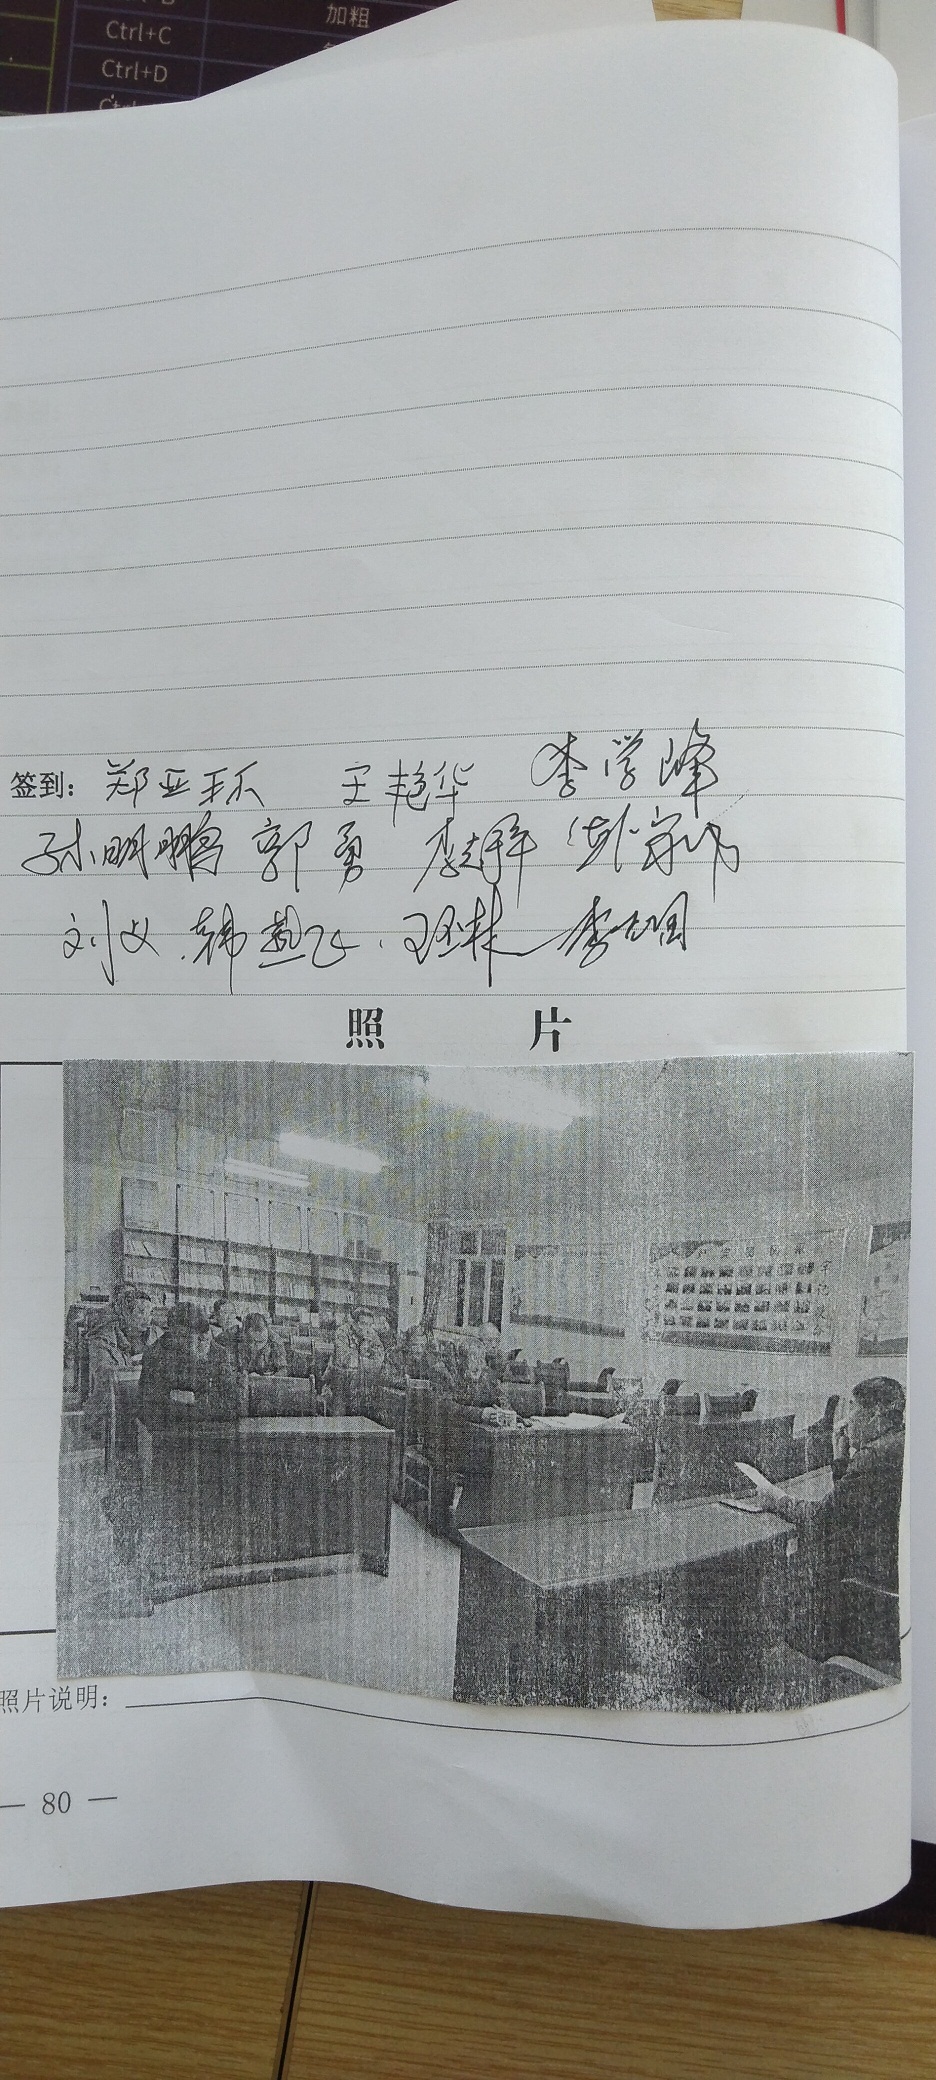 加粗
Ctrl+C
Ctrl+D
签到: 郑亚环 王艳华 李学峰
孙明鹏 郭勇 李志军
刘义 韩燕飞 李明
照 片
照片说明:
— 80 —